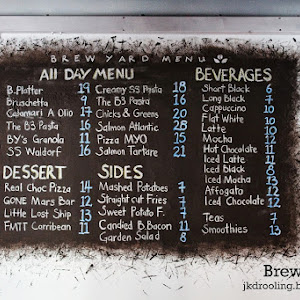 BREW YARD MENU
All DAY MENU
B.Platter 19
Bruschetta 9
Calamari A Olio 17
The B3 Pasta 16
BY's Granola 11
SS Waldorf 16
Creamy SS Pasta 18
The B3 Pasta 16
Chicks & Greens 20
Salmon Atlantic 28
Pizza MYO 15
Salmon Tartare 21
BEVERAGES
Short Black 6
Long Black 7
Cappuccino 10
Flat White 10
Latte 10
Mocha 11
Hot Chocolate 11
Iced Latte 11
Iced Black 8
Iced Mocha 13
Affogato 12
Iced Chocolate 12
Teas 7
Smoothies 13
DESSERT
Real Choc Pizza 14
GONE Mars Bar 12
Little Lost Ship 13
FMTT Corribean 11
SIDES
Mashed Potatoes 7
Straight cut Fries 7
Sweet Potato F. 7
Candied B.Bacon 11
Garden Salad 8
Brew
jkdrooling.b